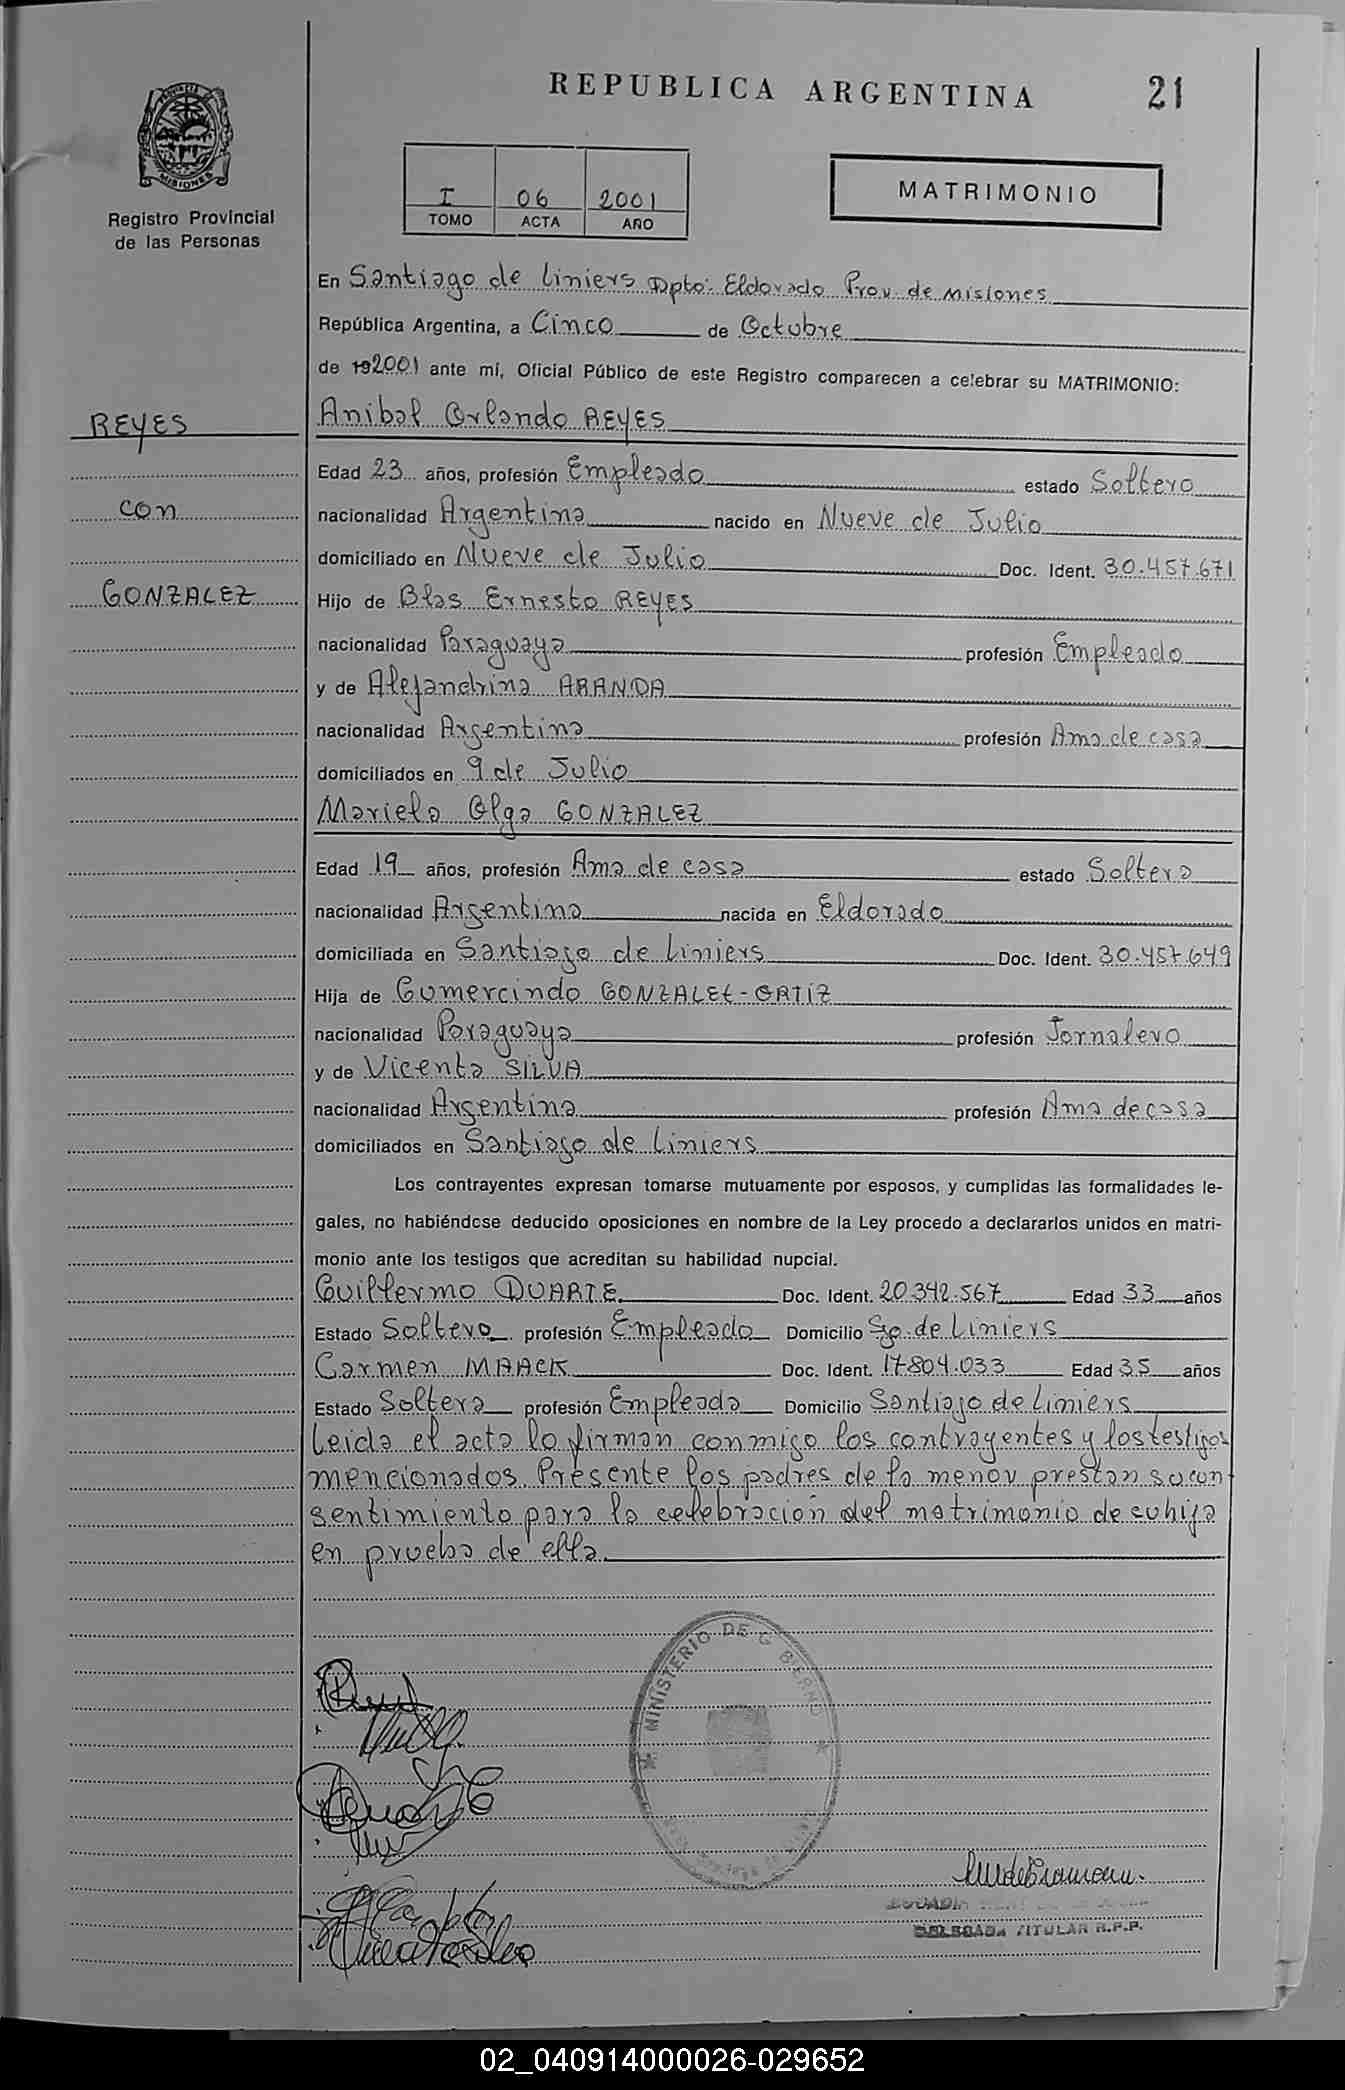 REPUBLICA ARGENTINA
21
MISIONES
Registro Provincial
de las Personas
I 06 2001
TOMO ACTA AÑO
MATRIMONIO
En Santiago de Liniers Dpto: Eldorado Prov. de Misiones
República Argentina, a Cinco de Octubre
de 192001 ante mí, Oficial Público de este Registro comparecen a celebrar su MATRIMONIO:
REYES
con
GONZALEZ
Anibal Orlando REYES
Edad 23 años, profesión Empleado estado Soltero
nacionalidad Argentina nacido en Nueve de Julio
domiciliado en Nueve de Julio Doc. Ident. 30.457.671
Hijo de Blas Ernesto REYES
nacionalidad Paraguaya profesión Empleado
y de Alejandrina ARANDA
nacionalidad Argentina profesión Ama de casa
domiciliados en 9 de Julio
Mariela Olga GONZALEZ
Edad 19 años, profesión Ama de casa estado Soltera
nacionalidad Argentina nacida en Eldorado
domiciliada en Santiago de Liniers Doc. Ident. 30.457.649
Hija de Gumercindo GONZALEZ-ORTIZ
nacionalidad Paraguaya profesión Jornalero
y de Vicenta SILVA
nacionalidad Argentina profesión Ama de casa
domiciliados en Santiago de Liniers
Los contrayentes expresan tomarse mutuamente por esposos, y cumplidas las formalidades le-
gales, no habiéndose deducido oposiciones en nombre de la Ley procedo a declararlos unidos en matri-
monio ante los testigos que acreditan su habilidad nupcial.
Guillermo DUARTE Doc. Ident. 20.342.567 Edad 33 años
Estado Soltero profesión Empleado Domicilio Sgo. de Liniers
Carmen MAACK Doc. Ident. 17.804.033 Edad 35 años
Estado Soltera profesión Empleada Domicilio Santiago de Liniers
Leida el acta lo firman conmigo los contrayentes y los testigos
mencionados. Presente los padres de la menor prestan su con
sentimiento para la celebración del matrimonio de su hija
en prueba de ella.
MINISTERIO DE G BIERNO
DELEGADA TITULAR R.P.P.
02_040914000026-029652